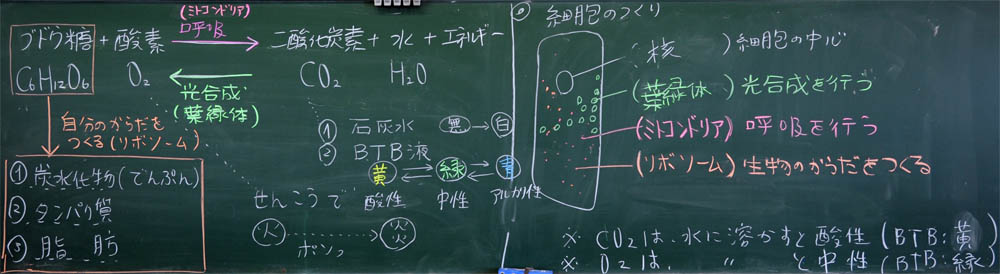 (ミトコンドリア)
呼吸
ブドウ糖 + 酸素 → 二酸化炭素 + 水 + エネルギー
C₆H₁₂O₆ O₂ ← CO₂ H₂O
光合成
(葉緑体)
自分のからだを
つくる(リボソーム)
① 炭水化物(でんぷん)
② タンパク質
③ 脂肪
① 石灰水 無→白
② BTB液
黄 ⇄ 緑 ⇄ 青
酸性 中性 アルカリ性
せんこうで
火 → 炎
ボンッ
細胞のつくり
(核)細胞の中心
(葉緑体)光合成を行う
(ミトコンドリア)呼吸を行う
(リボソーム)生物のからだをつくる
※ CO₂は、水に溶かすと酸性(BTB:黄)
※ O₂は、 〃 と中性(BTB:緑)